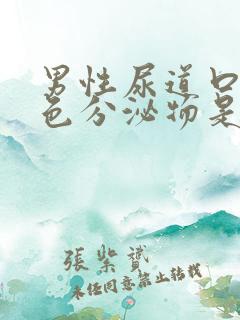 男性尿道口
色分泌物是
張紫贇
未经同意禁止转载